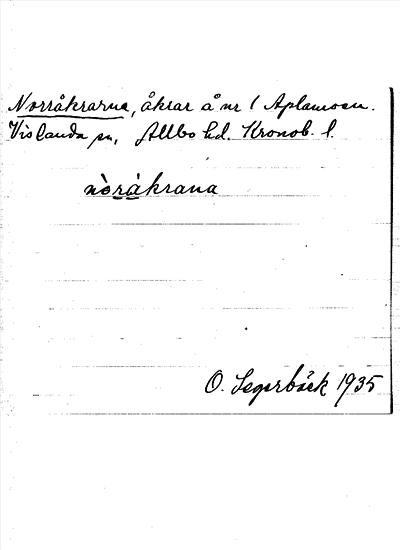 Norråkrarna, åkrar å nr 1 Aplamoen.
Vislanda sn, Allbo hd. Kronob. l.
nòråkrana
O. Segerbäck 1935